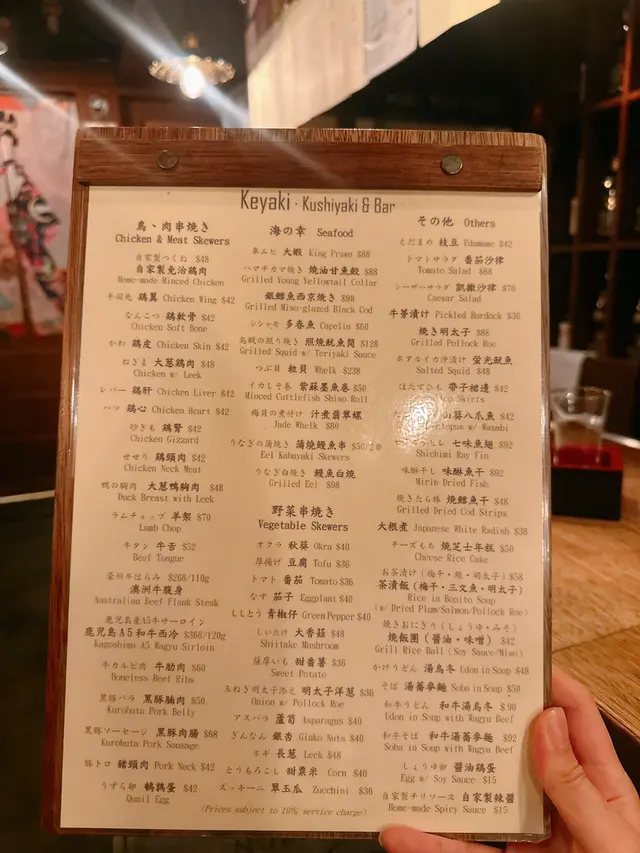 Keyaki · Kushiyaki & Bar
鳥、肉串焼き
Chicken & Meat Skewers
自家製つくね $48
自家製免治鶏肉
Home-made Minced Chicken
手羽先 鶏翼 Chicken Wing $42
なんこつ 鶏軟骨 $42
Chicken Soft Bone
かわ 鶏皮 Chicken Skin $42
ねぎま 大葱鶏肉 $48
Chicken w/ Leek
レバー 鶏肝 Chicken Liver $42
ハツ 鶏心 Chicken Heart $42
砂ぎも 鶏腎 $42
Chicken Gizzard
せせり 鶏頸肉 $42
Chicken Neck Meat
鴨の胸肉 大葱鴨胸肉 $48
Duck Breast with Leek
ラムチョップ 羊架 $70
Lamb Chop
牛タン 牛舌 $52
Beef Tongue
豪州牛はらみ $268/110g
澳洲牛腹身
Australian Beef Flank Steak
鹿児島産A5牛サーロイン
鹿児島A5和牛西冷 $368/120g
Kagoshima A5 Wagyu Sirloin
牛カルビ肉 牛肋肉 $60
Boneless Beef Ribs
黒豚バラ 黑豚腩肉 $50
Kurobuta Pork Belly
黒豚ソーセージ 黑豚肉腸 $68
Kurobuta Pork Sausage
豚トロ 豬頸肉 Pork Neck $42
うずら卵 鵪鶉蛋 $42
Quail Egg
海の幸 Seafood
車エビ 大蝦 King Prawn $88
ハマチカマ焼き 燒油甘魚鮫 $88
Grilled Young Yellowtail Collar
銀鱈魚西京燒き $98
Grilled Miso-glazed Black Cod
シシャモ 多春魚 Capelin $60
烏賊の照り焼き 照燒魷魚筒 $128
Grilled Squid w/ Teriyaki Sauce
つぶ貝 粒貝 Whelk $238
イカしそ巻 紫蘇墨魚巻 $50
Minced Cuttlefish Shiso Roll
梅貝の煮付け 汁煮翡翠螺
Jade Whelk $80
うなぎの蒲焼き 蒲燒鰻魚串 $50/2串
Eel Kabayaki Skewers
うなぎ白焼き 鰻魚白燒
Grilled Eel $98
野菜串焼き
Vegetable Skewers
オクラ 秋葵 Okra $40
厚揚げ 豆腐 Tofu $36
トマト 番茄 Tomato $36
なす 茄子 Eggplant $40
ししとう 青椒仔 Green Pepper $40
しいたけ 大香菇 $48
Shiitake Mushroom
薩摩いも 甜番薯 $36
Sweet Potato
玉ねぎ明太子添え 明太子洋葱 $36
Onion w/ Pollock Roe
アスパラ 蘆筍 Asparagus $40
ぎんなん 銀杏 Ginko Nuts $40
ネギ 長葱 Leek $48
とうもろこし 甜粟米 Corn $40
ズッキーニ 翠玉瓜 Zucchini $36
その他 Others
えだまめ 枝豆 Edamame $42
トマトサラダ 番茄沙律
Tomato Salad $68
シーザーサラダ 凱撒沙律 $70
Caesar Salad
牛蒡漬け Pickled Burdock $36
燒き明太子 $88
Grilled Pollock Roe
ホタルイカ沖漬け 螢光魷魚
Salted Squid $48
ほたてひも 帶子裙邊 $42
Skirts
山葵八爪魚 $42
w/ Wasabi
七味魚翅 $92
Shichimi Ray Fin
味醂干し 味醂魚干 $92
Mirin Dried Fish
焼きたら棒 燒鱈魚干 $48
Grilled Dried Cod Strips
大根煮 Japanese White Radish $38
チーズもち 燒芝士年糕 $50
Cheese Rice Cake
お茶漬け (梅干・鮭・明太子) $58
茶漬飯 (梅干・三文魚・明太子)
Rice in Bonito Soup
(w/ Dried Plum/Salmon/Pollock Roe)
焼きおにぎり (しょうゆ・みそ)
燒飯團 (醬油・味噌) $42
Grill Rice Ball (Soy Sauce/Miso)
かけうどん 湯烏冬 Udon in Soup $48
そば 湯蕎麥麵 Soba in Soup $50
和牛うどん 和牛湯烏冬 $90
Udon in Soup with Wagyu Beef
和牛そば 和牛湯蕎麥麵 $92
Soba in Soup with Wagyu Beef
しょうゆ卵 醬油鶏蛋
Egg w/ Soy Sauce $15
自家製チリソース 自家製辣醬
Home-made Spicy Sauce $15
(Prices subject to 10% service charge)